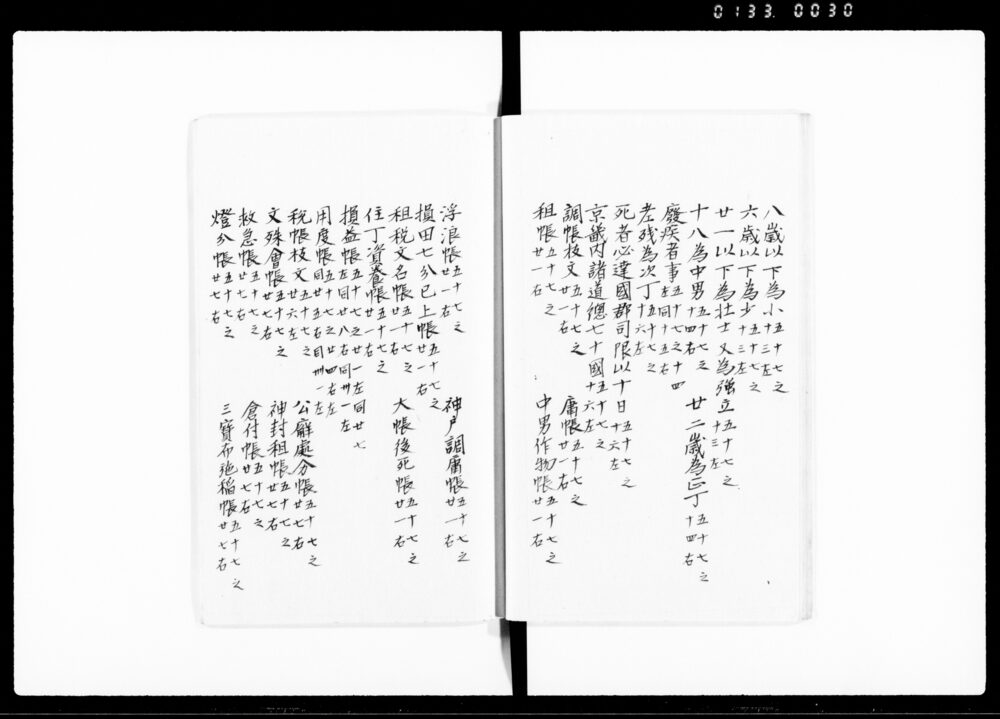 0133 0030
八歳以下為小五十七之十三左
六歳以下為少五十七之十三左
廿一以下為壮士又為強立五十七之十三左
十八為中男五十七之十四右 廿二歳為正丁五十七之十四右
廢疾者事五十七之十四左同十五右
老残為次丁五十七之十六左
死者必達國郡司限以十日五十七之十六左
京畿内諸道總七十國五十七之十六左
調帳枝文五十七之廿一右 庸帳五十七之廿一右
租帳五十七之廿一右 中男作物帳五十七之廿一右
浮浪帳五十七之廿一右 神戸調庸帳五十七之廿一右
損田七分已上帳五十七之廿一右
租税文名帳五十七之廿一右 大帳後死帳五十七之廿一右
仕丁資養帳五十七之廿一右
損益帳五十七之廿一左同廿七左同廿八右同卅一左
用度帳五十七之廿四右同廿五右同卅一左
税帳枝文五十七之廿六左 公廨處分帳五十七之廿七右
文殊會帳五十七之廿七右 神封租帳五十七之廿七右
救急帳五十七之廿七右 倉付帳五十七之廿七右
燈分帳五十七之廿七右 三寶布施稲帳五十七之廿七右